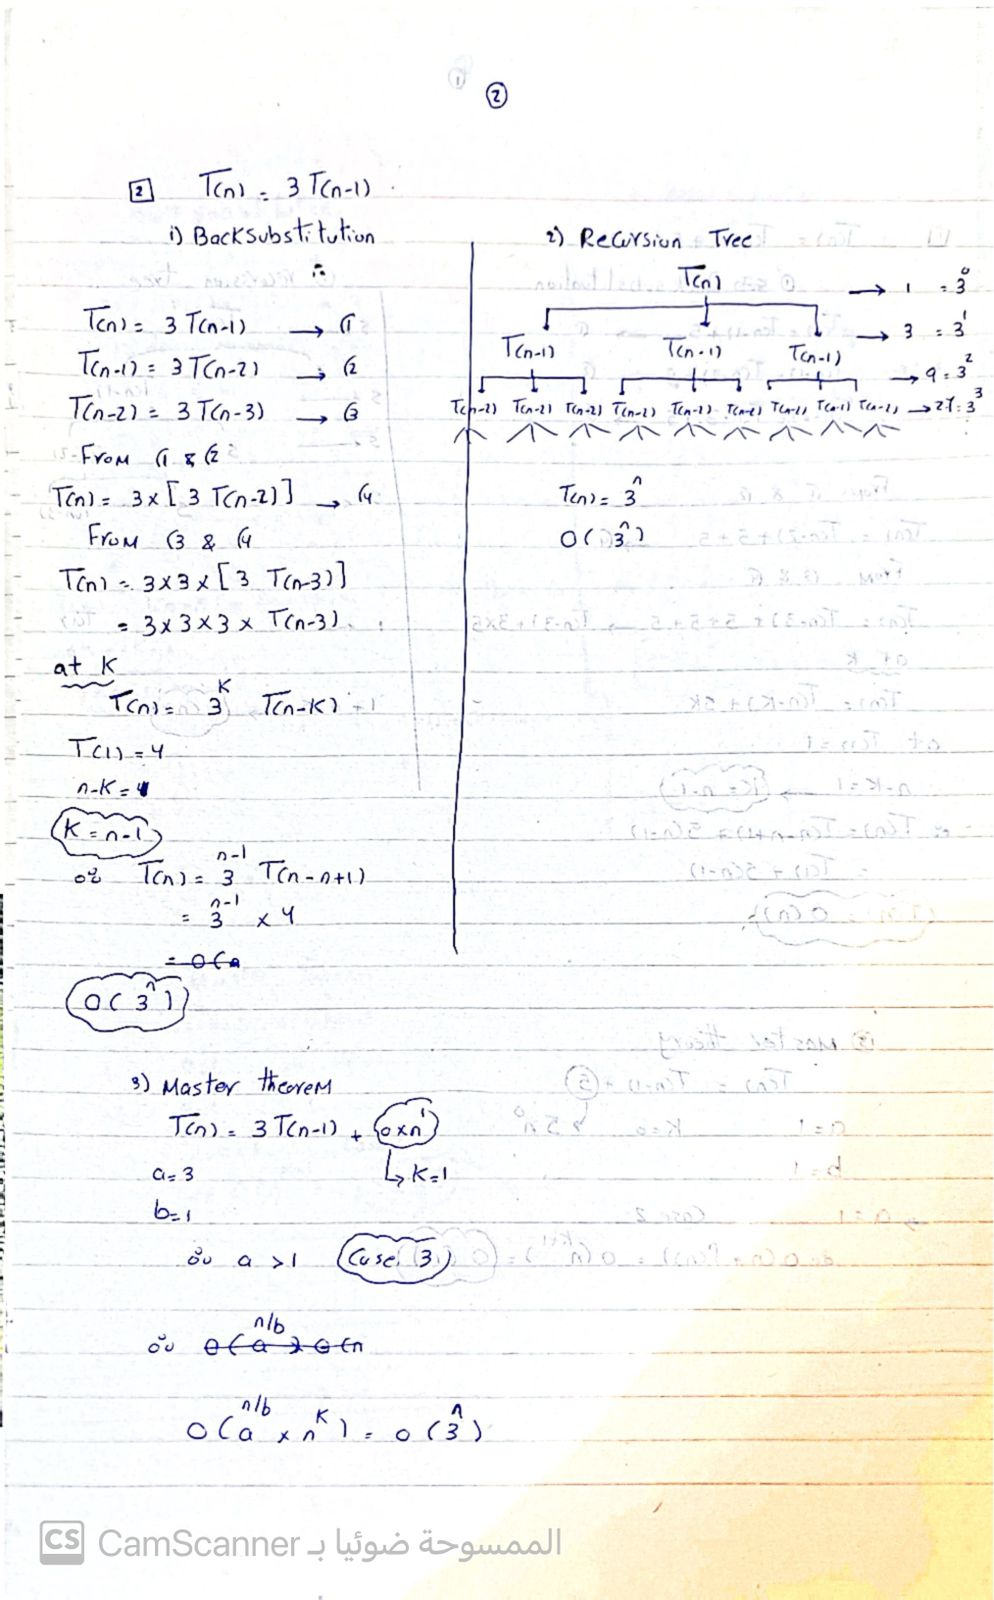 ②
[2] T(n) = 3T(n-1)
1) Backsubstitution
T(n) = 3T(n-1) → (1
T(n-1) = 3T(n-2) → (2
T(n-2) = 3T(n-3) → (3
From (1 & (2
T(n) = 3×[3T(n-2)] → (4
From (3 & (4
T(n) = 3×3×[3 T(n-3)]
= 3×3×3× T(n-3)
at K
T(n) = 3^K T(n-K)
T(1) = 4
n-K = 1
K = n-1
T(n) = 3^n-1 T(n-n+1)
= 3^n-1 × 4
= O(n
O(3^n)
2) Recursion Tree
T(n) → 1 = 3^0
→ 3 = 3^1
T(n-1) T(n-1) T(n-1)
→ 9 = 3^2
T(n-2) T(n-2) T(n-2) T(n-2) T(n-2) T(n-2) T(n-2) T(n-2) T(n-2) → 27 = 3^3
T(n) = 3^n
O(3^n)
3) Master theorem
T(n) = 3T(n-1) + 0×n^1
a = 3 ↳ K=1
b = 1
a > 1 Case 3
O(a^n/b) O(n
O(a^n/b × n^K) = O(3^n)
CS CamScanner الممسوحة ضوئيا بـ